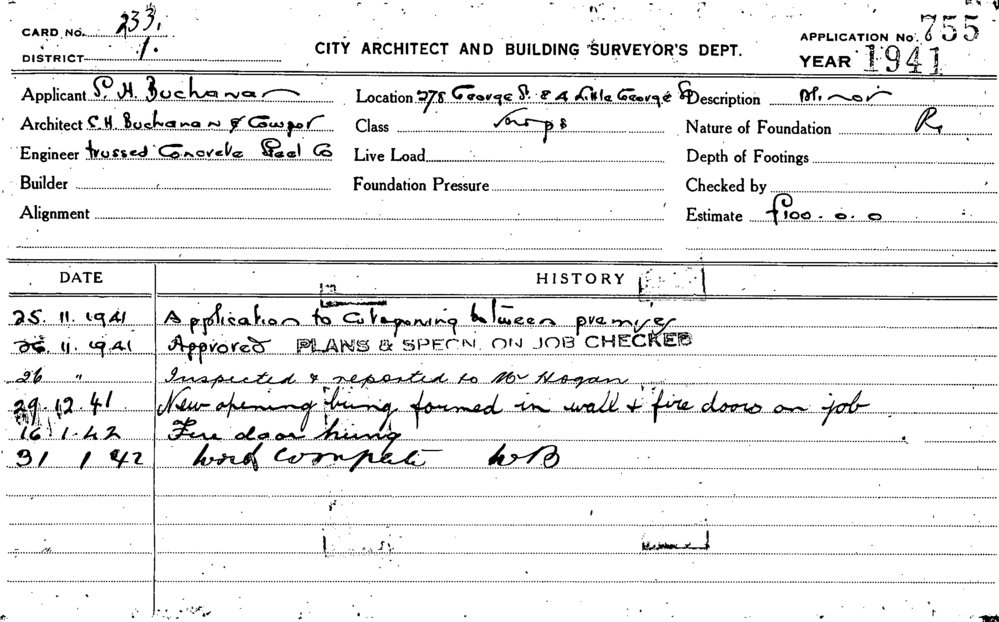 CARD No. 233.
DISTRICT 1.
CITY ARCHITECT AND BUILDING SURVEYOR'S DEPT.
APPLICATION No. 755
YEAR 1941
Applicant S. H. Buchanan
Location 278 George St. & 4 Little George St
Description Minor
Architect S.H. Buchanan & Cowper
Class
Nature of Foundation R
Engineer Trussed Concrete Steel Co
Live Load
Depth of Footings
Builder
Foundation Pressure
Checked by
Alignment
Estimate £100.0.0
DATE
HISTORY
25. 11. 1941 Application to Cut opening between premises
26. 11. 1941 Approved PLANS & SPECN. ON JOB CHECKED
26 " Inspected & reported to Mr Hogan
29. 12. 41 New opening being formed in wall & fire doors on job
16 1. 42 Fire door hung
31 1 42 Work Complete WB